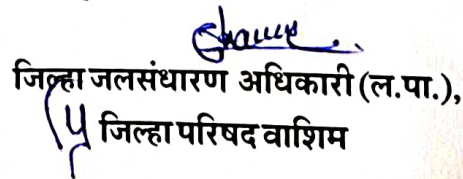 जिल्हा जलसंधारण अधिकारी (ल.पा.),
जिल्हा परिषद वाशिम